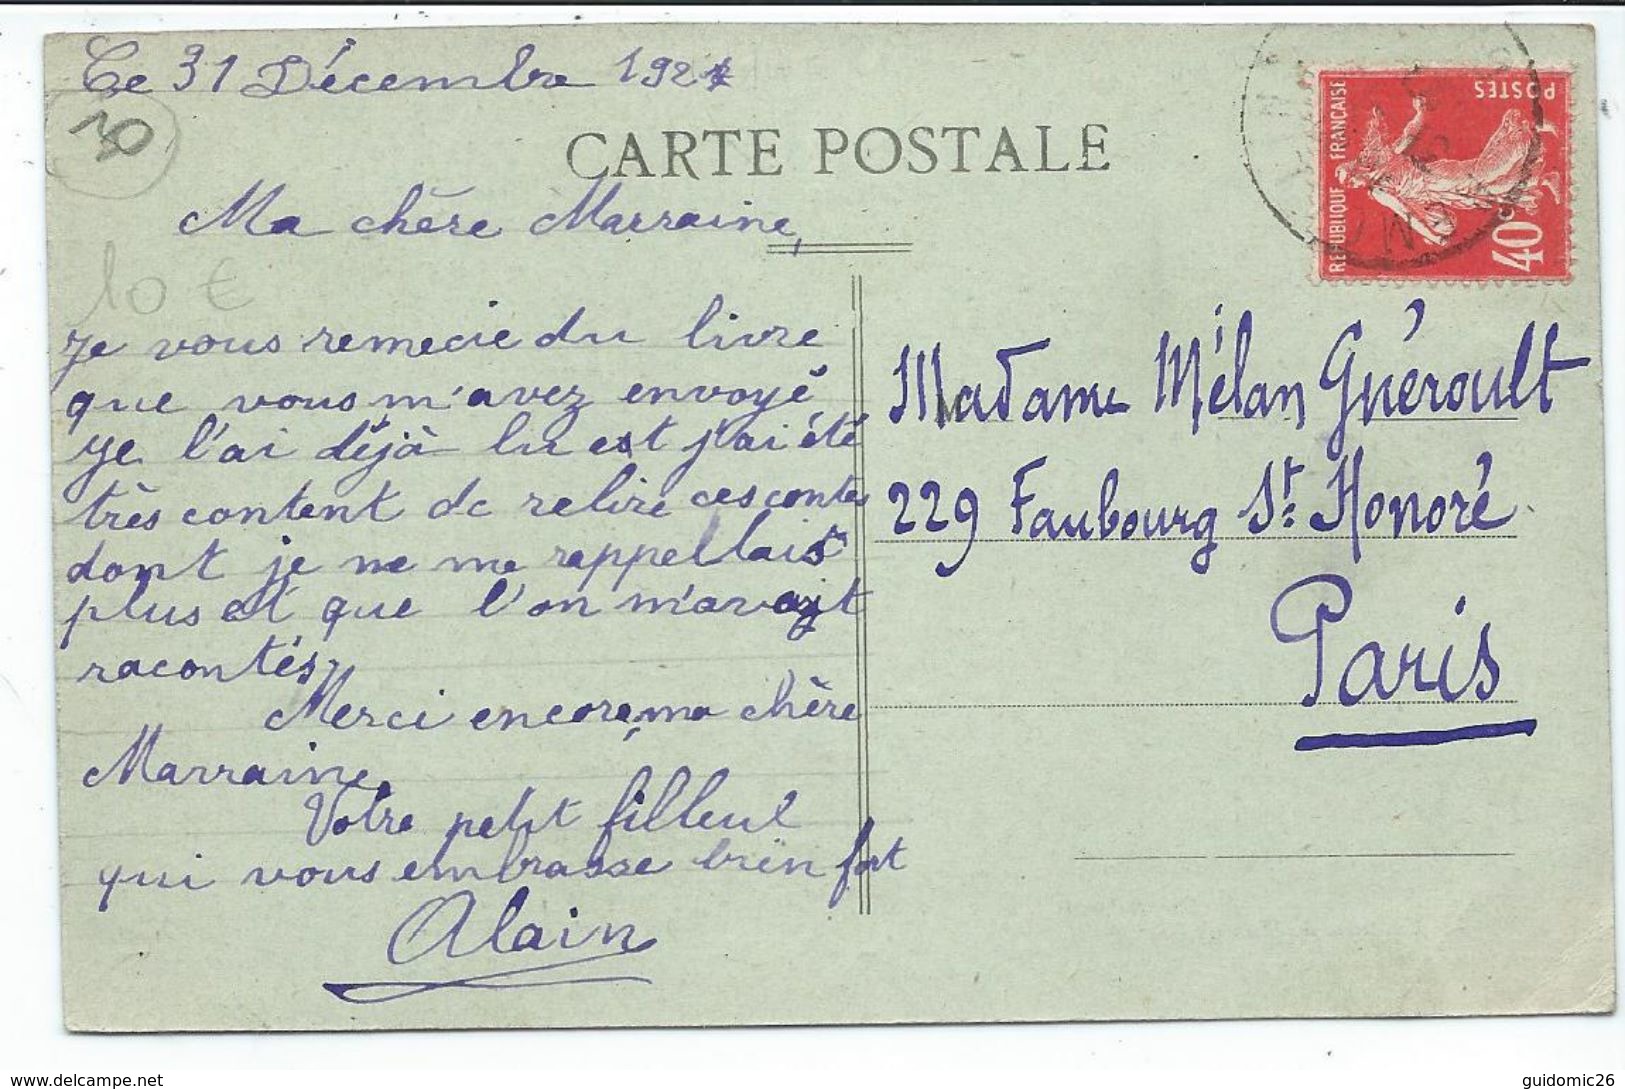 Ce 31 Décembre 192
30
CARTE POSTALE
Ma chère Marraine,
10 €
Je vous remecie du livre
que vous m'avez envoyé
je l'ai déjà lu est j'ai été
très content de relire ces contes
dont je ne me rappellais
plus et que l'on m'avait
racontés,
Merci encore, ma chère
Marraine,
Votre petit filleul
qui vous embrasse bien fort
Alain
REPUBLIQUE FRANÇAISE
POSTES
40c
Madame Mélan Guéroult
229 Faubourg St. Honoré.
Paris
www.delcampe.net
guidomic26